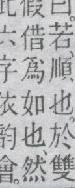 曰若、順也。於雙
假借爲如也然
此六字依韵會。